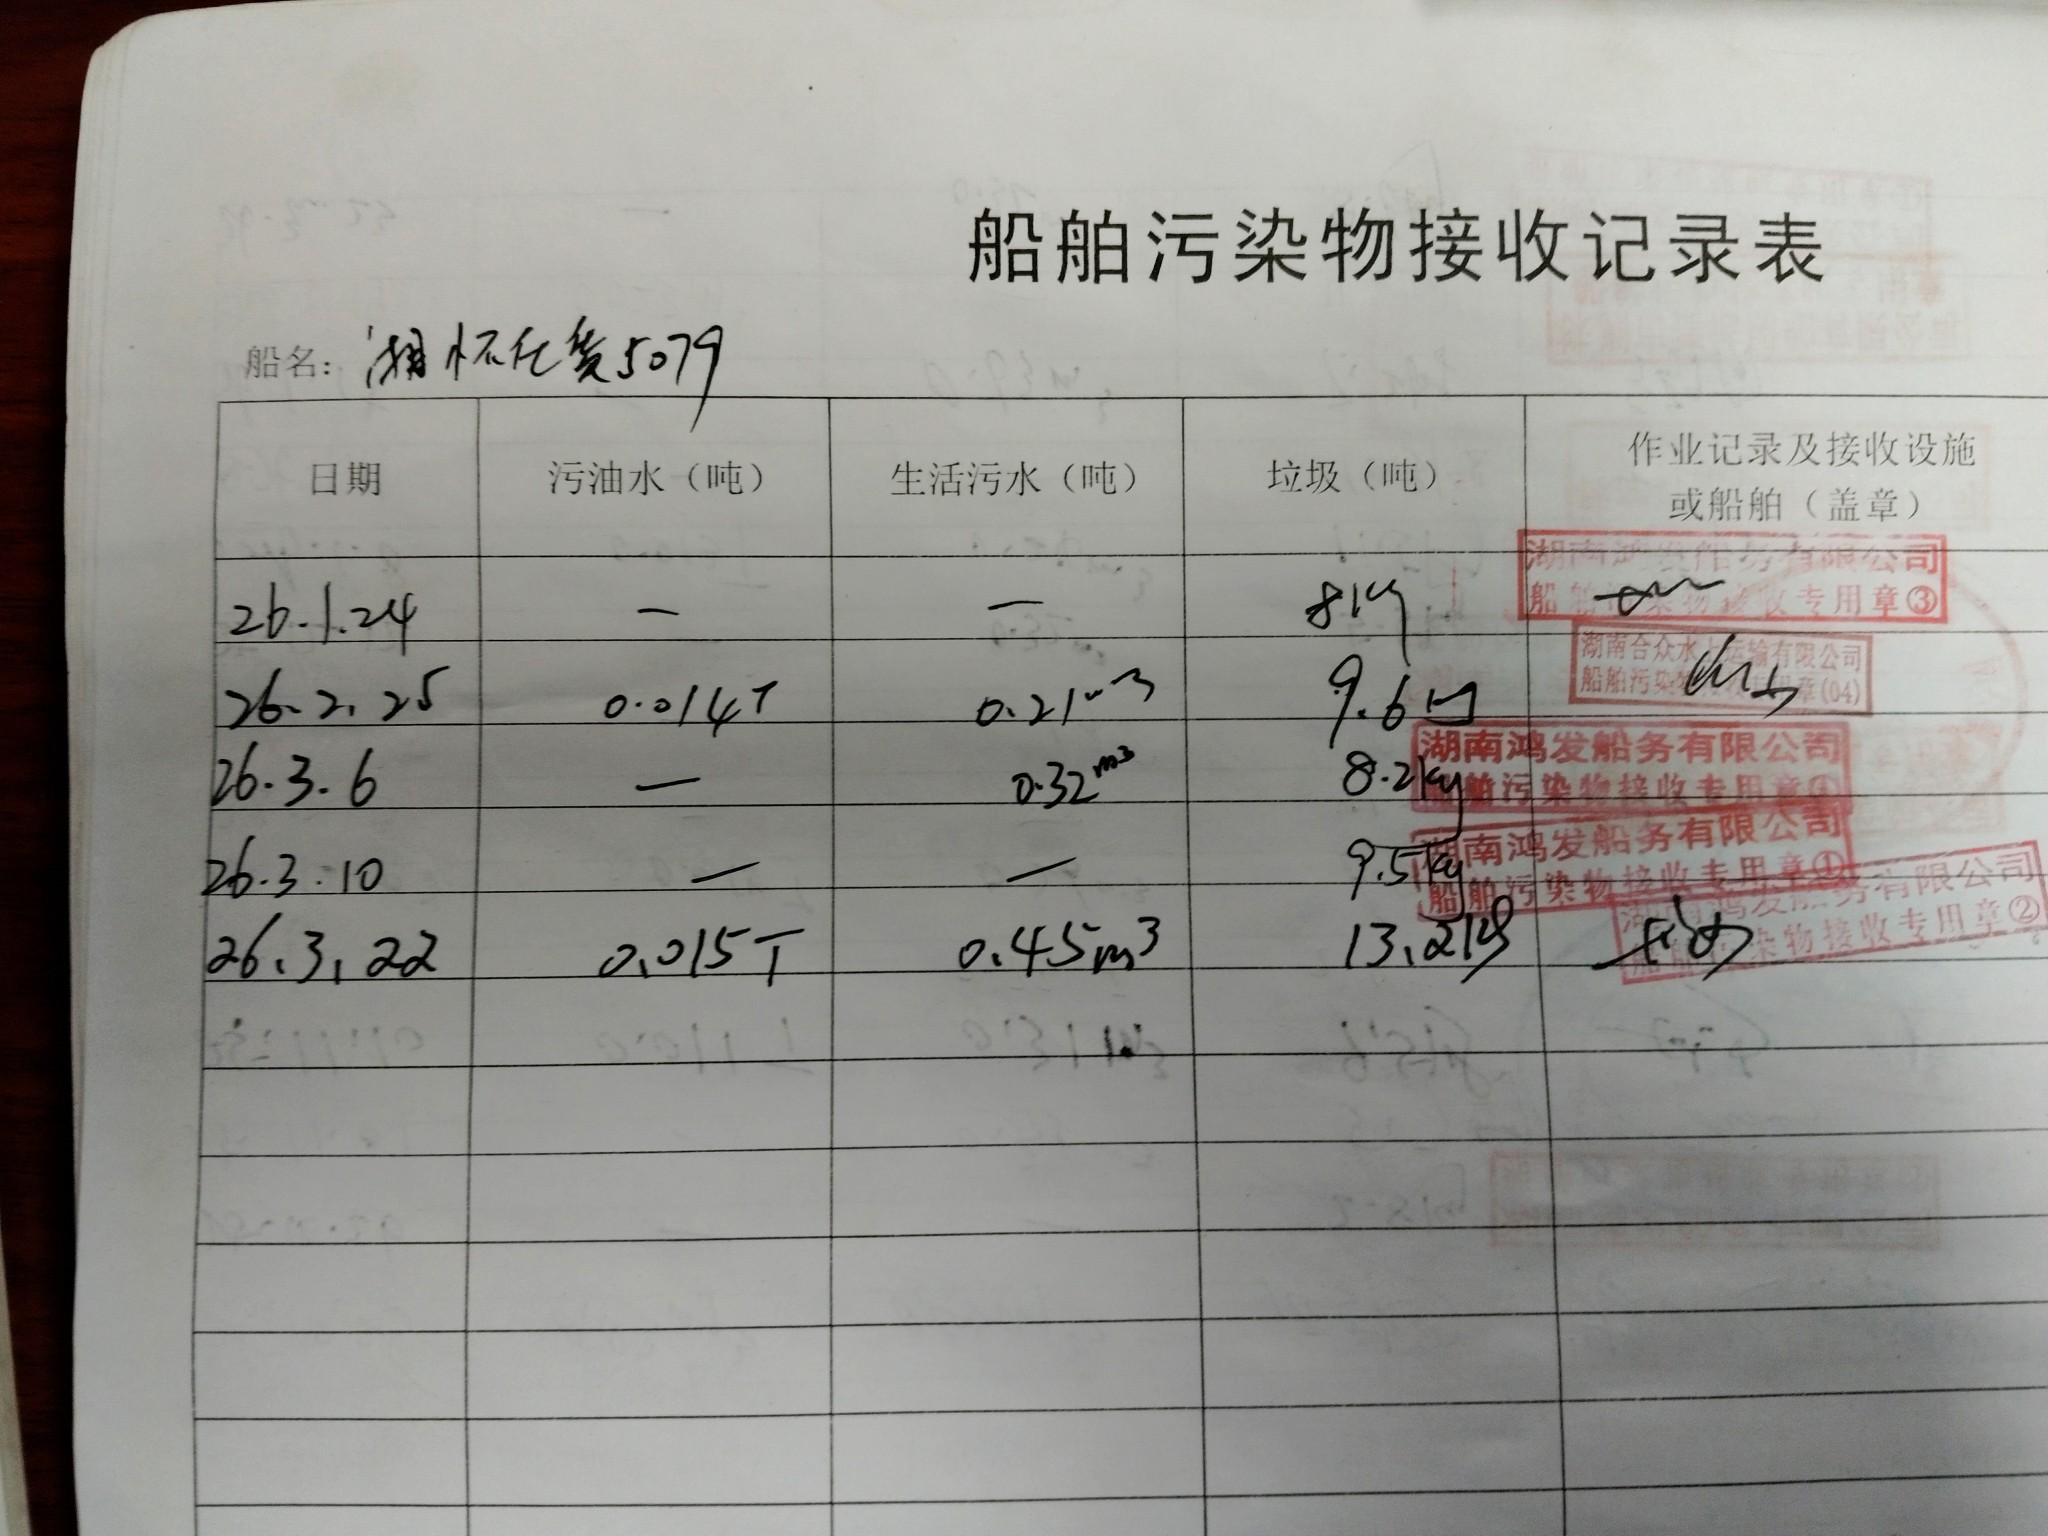 船舶污染物接收记录表
船名：湘怀化货5079
日期 污油水（吨） 生活污水（吨） 垃圾（吨） 作业记录及接收设施
或船舶（盖章）
湖南鸿发船务有限公司
船舶污染物接收专用章③
26.1.24 — — 8kg
湖南合众水上运输有限公司
船舶污染物接收专用章(04)
26.2.25 0.014T 0.21m3 9.6kg
湖南鸿发船务有限公司
船舶污染物接收专用章①
26.3.6 — 0.32m3 8.2kg
湖南鸿发船务有限公司
船舶污染物接收专用章①
26.3.10 — — 9.5kg
湖南鸿发船务有限公司
船舶污染物接收专用章②
26.3.22 0.015T 0.45m3 13.2kg